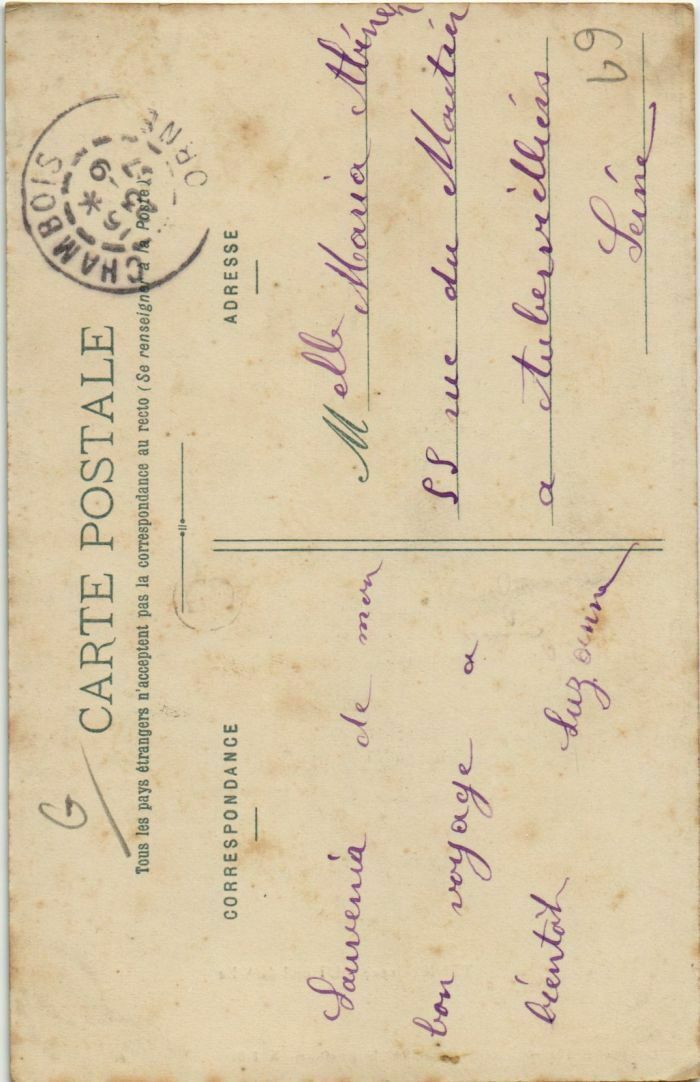 CARTE POSTALE
Tous les pays étrangers n'acceptent pas la correspondance au recto (Se renseigner à la Poste).
CHAMBOIS
ORNE
15 * 6
CORRESPONDANCE
Souvenia de mon
bon voyage a
bientôt Suzanne
ADRESSE
Melle Maria
55 rue du
a Aubervilliers
Seine
69
G